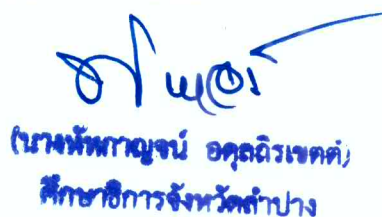 (นางพัทกาญจน์ อดุลถิรเขตต์)
ศึกษาธิการจังหวัดลำปาง